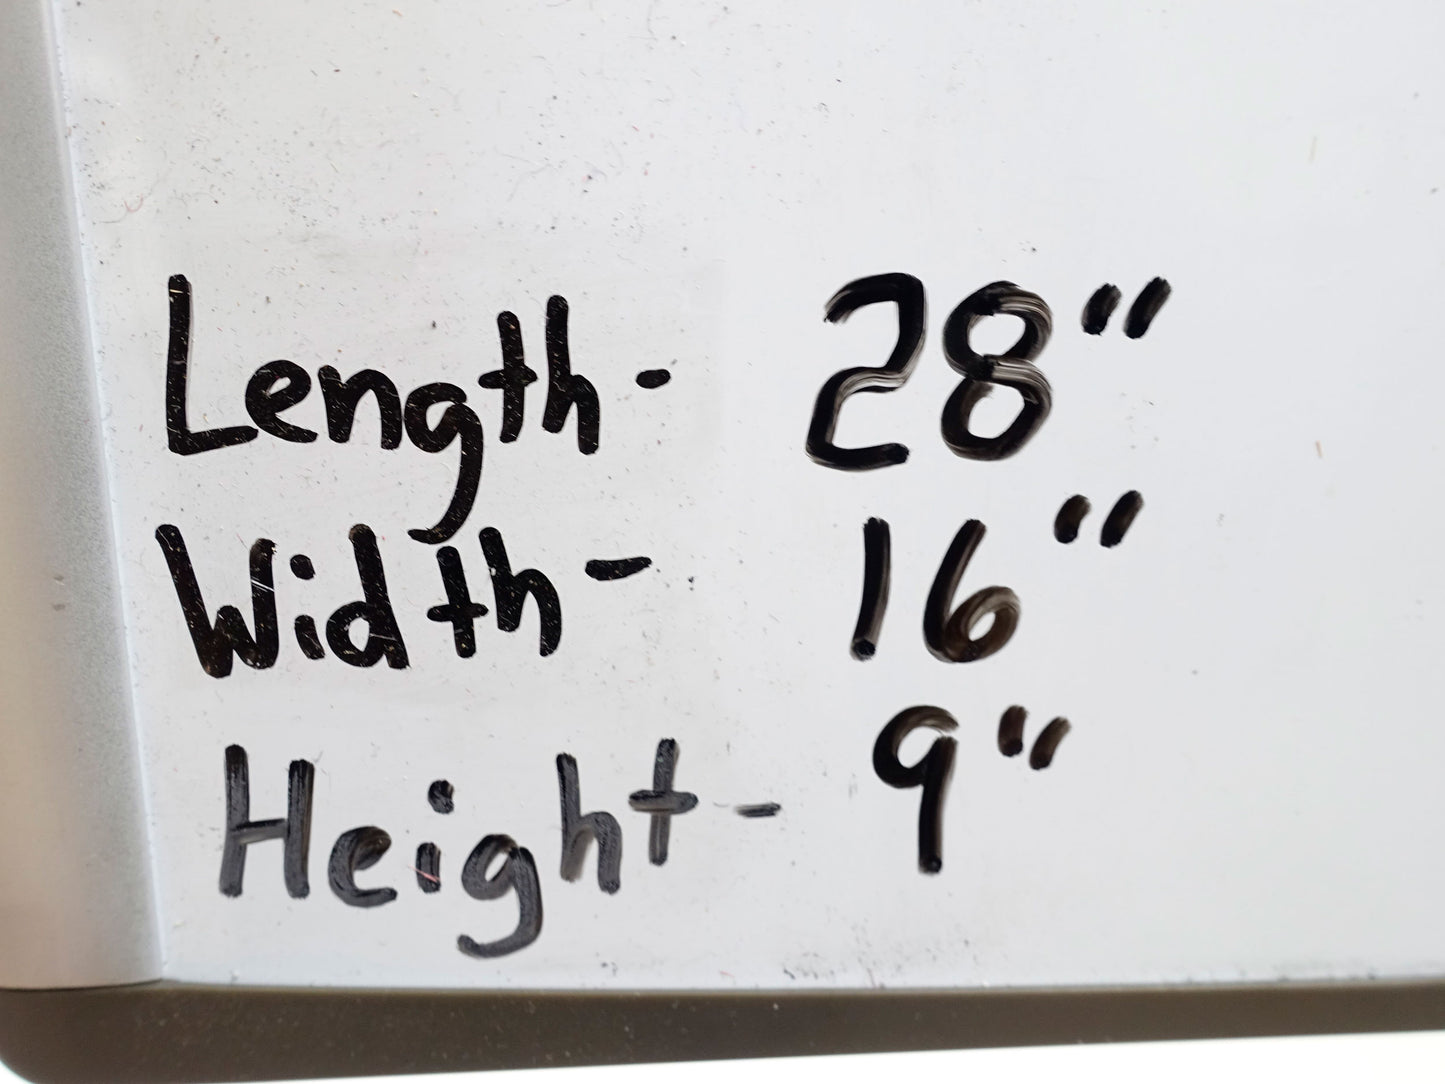 Length- 28"
Width- 16"
Height- 9"